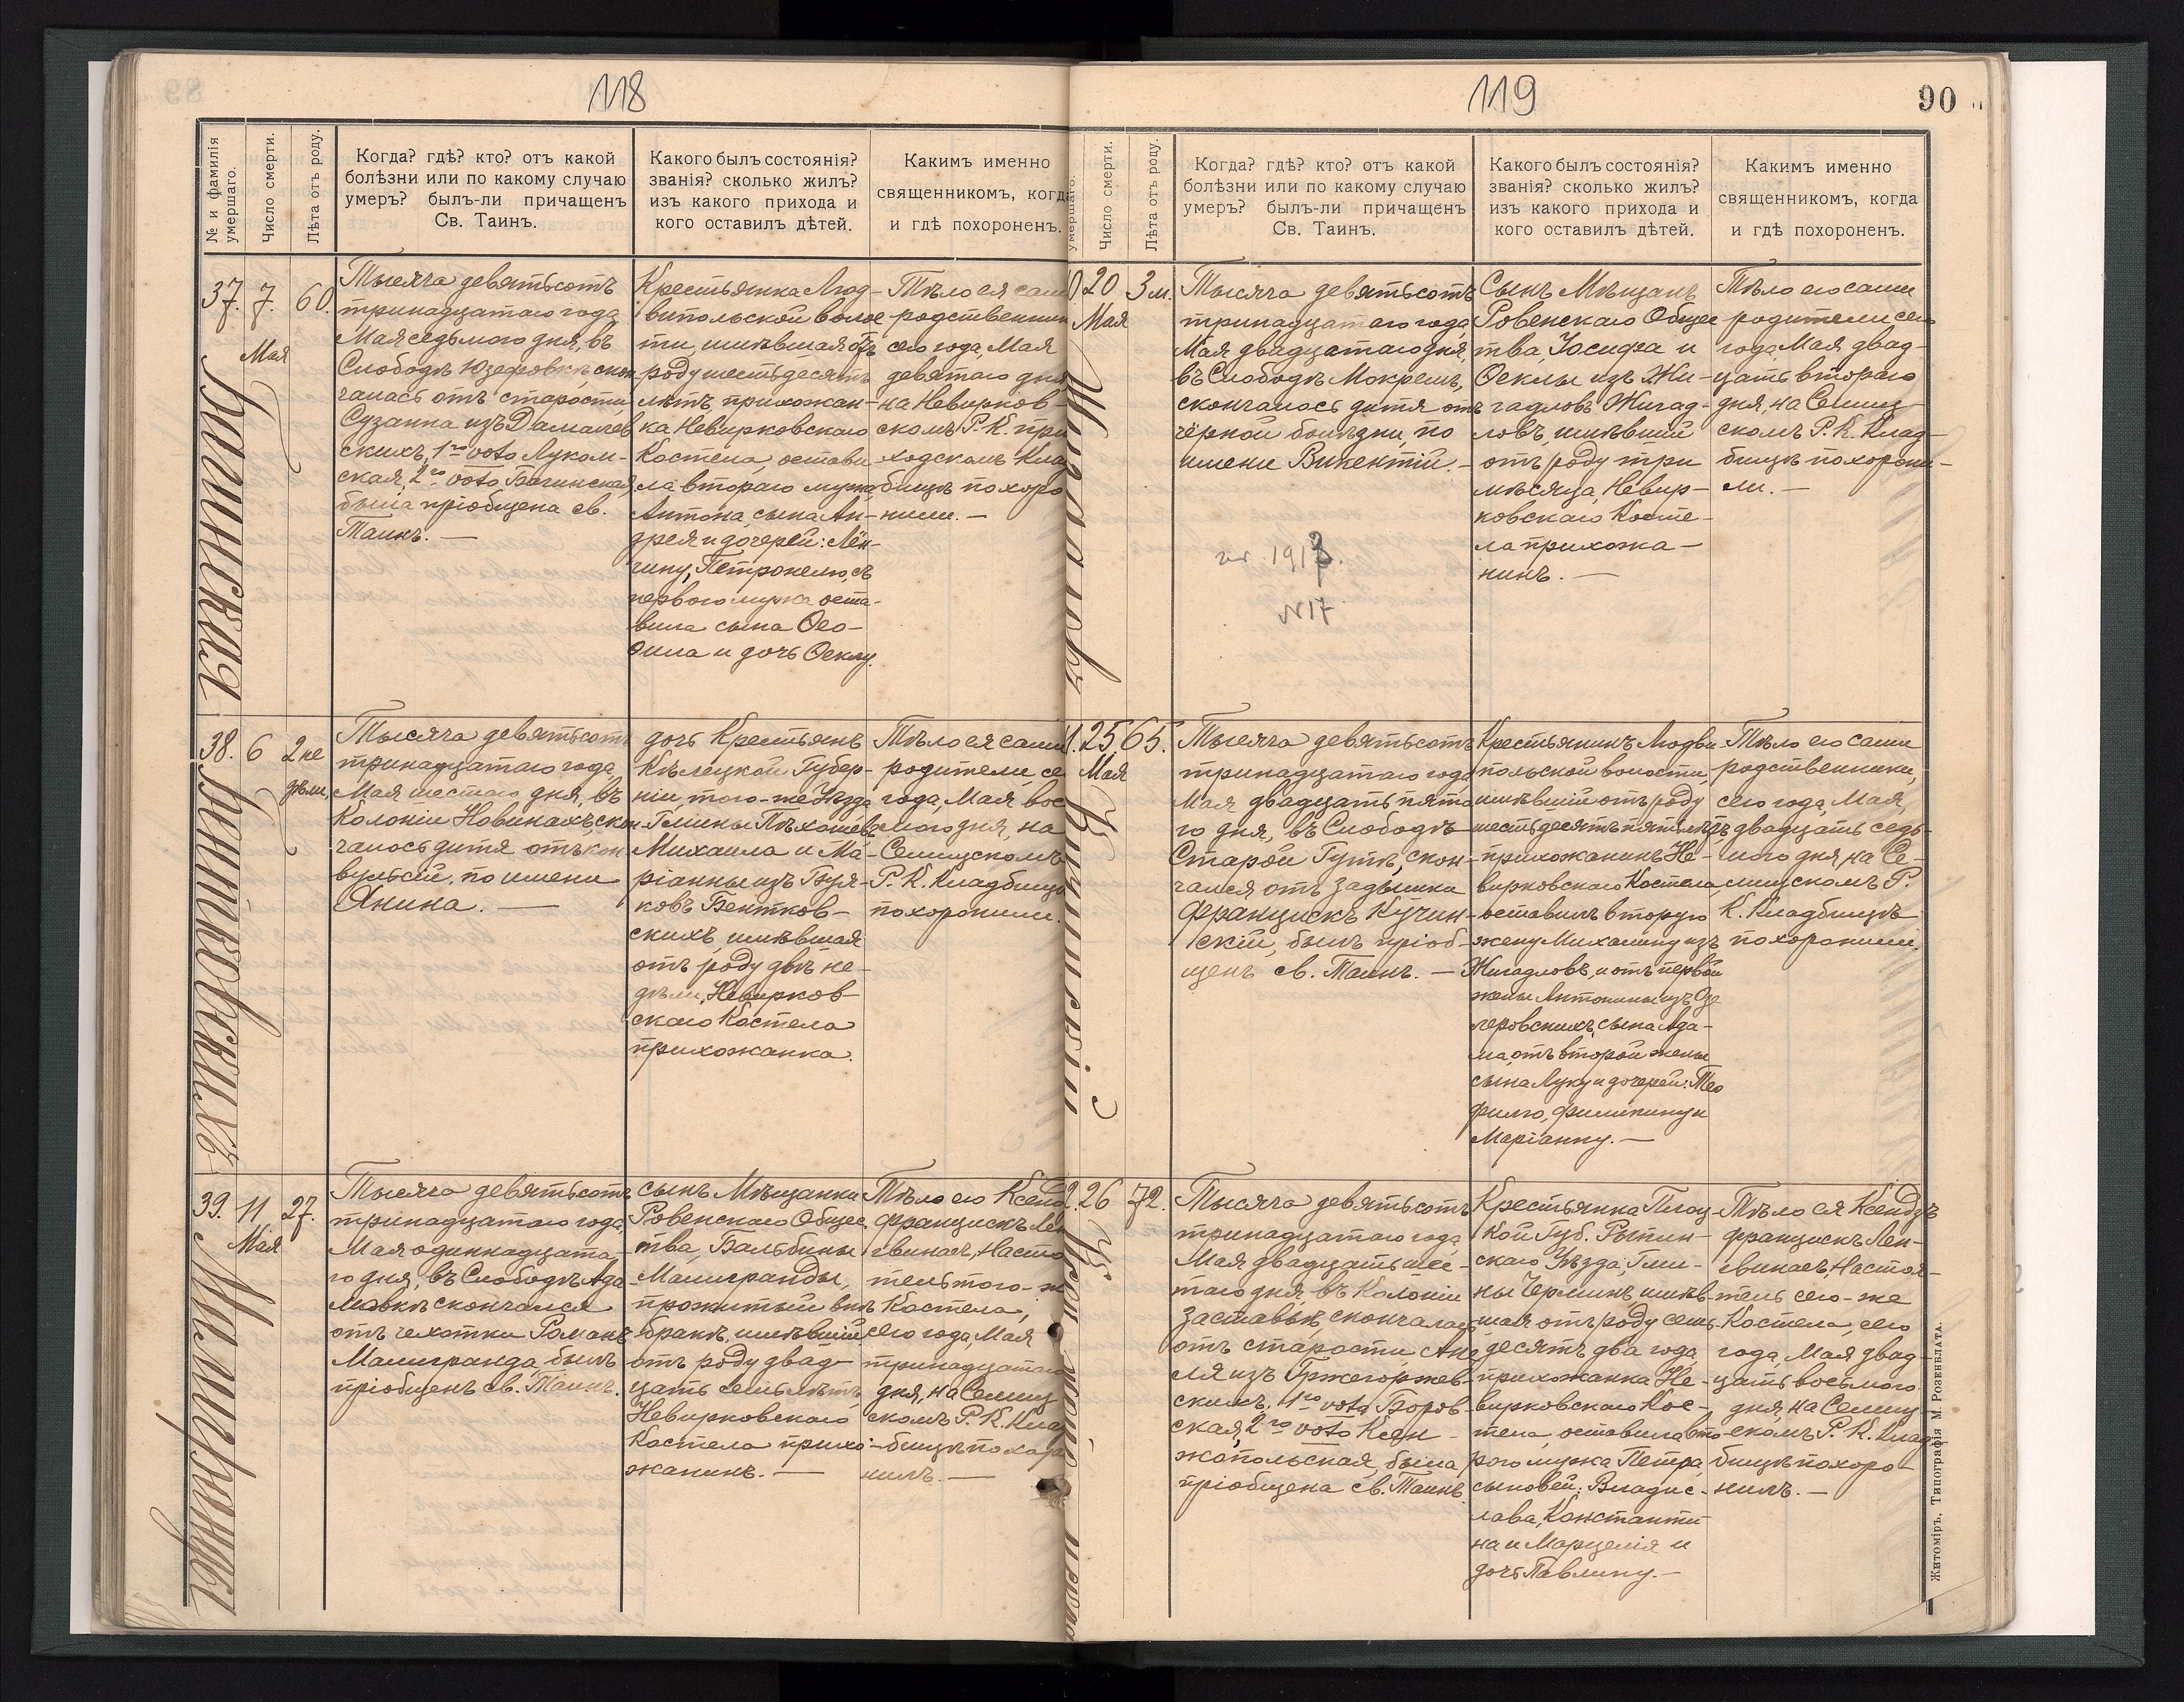 118
№ и фамилія умершаго.
Число смерти.
Лѣта отъ роду.
Когда? гдѣ? кто? отъ какой
болѣзни или по какому случаю
умеръ? былъ-ли причащенъ
Св. Таинъ.
Какого былъ состоянія?
званія? сколько жилъ?
изъ какого прихода и
кого оставилъ дѣтей.
Какимъ именно
священникомъ, когда
и гдѣ похороненъ.
37.
Багинская
7.
Мая
60.
Тысяча девятьсотъ
тринадцатаго года
Мая седьмого дня, въ
Слободѣ Юзефовкѣ, скон
чалась отъ старости
Сузанна изъ
скихъ, 1го voto Луком-
ская, 2го voto Багинская,
была пріобщена св.
Таинъ. —
Крестьянка Люд-
випольской волос
ти, имѣвшая отъ
роду шестьдесятъ
лѣтъ, прихожан-
ка Невирковскаго
Костела, остави-
ла второго мужа
Антона, сына Ан-
дрея и дочерей: Лён-
чину, Петронелю, съ
первого мужа оста-
вила сына Ѳео-
фила и дочь Ѳеклу.
Тѣло ея сами
родственники
сего года, Мая
девятаго дня
на Невирков-
скомъ Р. К. при
ходскомъ Клад
бищѣ похоро
нили. —
38.
Бентковскихъ
6
2 не
дѣли.
Тысяча девятьсотъ
тринадцатаго года,
Мая шестаго дня, въ
Колоніи Новинахъ, скон
чалось дитя отъ кон
вульсій, по имени
Янина. —
дочь Крестьянъ
Кѣлецкой Губер-
ніи, того-же Уѣзда
Гмины
Михаила и Ма-
ріанны изъ
ковъ Бентков-
скихъ, имѣвшая
отъ роду двѣ не-
дѣли, Невирков-
скаго Костела
прихожанка.
Тѣло ея сами
родители, се
го года, Мая вос
мого дня, на
Селищскомъ
Р. К. Кладбищѣ
похоронили.
39.
Малигранды
11
Мая
27.
Тысяча девятьсотъ
тринадцатаго года,
Мая одиннадцата-
го дня, въ Слободѣ Ада
мовкѣ скончался
отъ чахотки Романъ
Малигранда, былъ
пріобщенъ св. Таинъ.
сынъ Мѣщанки
Ровенскаго Общес
тва, Бальбины
Малигранды,
прожитый внѣ
бракѣ, имѣвшій
отъ роду двад-
цать семь лѣтъ,
Невирковскаго
Костела прихо-
жанинъ. —
Тѣло его Ксендзъ
Францискъ Лен
свинасъ, Насто
тель того-же
Костела,
сего года, Мая
тринадцатаго
дня, на Селищ
скомъ Р. К. Клад
бищѣ похоро
нилъ. —
119
90
умершаго.
Число смерти.
Лѣта отъ роду.
Когда? гдѣ? кто? отъ какой
болѣзни или по какому случаю
умеръ? былъ-ли причащенъ
Св. Таинъ.
Какого былъ состоянія?
званія? сколько жилъ?
изъ какого прихода и
кого оставилъ дѣтей.
Какимъ именно
священникомъ, когда
и гдѣ похороненъ.
0
20
Мая
3 м.
Тысяча девятьсотъ
тринадцатаго года,
Мая двадцатаго дня,
въ Слободѣ Мокремъ,
скончалось дитя отъ
чёрной болѣзни, по
имени Викентій. —
1913.
N17
Сынъ Мѣщанъ
Ровенскаго Общес
тва Іосифа и
Ѳеклы изъ Жи-
гадловъ Жигад-
ловъ, имѣвшій
отъ роду три
мѣсяца, Невир-
ковскаго Косте-
ла прихожа-
нинъ. —
Тѣло его сами
родители сего
года Мая двад-
цать второго
дня, на Селищ-
скомъ Р. К. Клад-
бищѣ похорони-
ли. —
1.
25.
Мая
65.
Тысяча девятьсотъ
тринадцатаго года
Мая двадцать пята
го дня, въ Слободѣ
Старой Гутѣ, скон-
чался отъ задышки
Францискъ Кучин-
скій, былъ пріоб-
щенъ св. Таинъ. —
Крестьянинъ Людви
польской волости,
имѣвшій отъ роду
шестьдесятъ пять лѣтъ,
прихожанинъ Не-
вирковскаго Костела,
оставилъ вторую
жену Михалину изъ
Жигадловъ, и отъ первой
жены Антонины изъ Оз
геровскихъ, сына Ада-
ма, отъ второй жены
сына Луку и дочерей: Тео
филю, Филипину и
Маріанну. —
Тѣло его сами
родственники,
сего года, Мая,
двадцать седь-
мого дня, на Се-
лищскомъ Р.
К. Кладбищѣ
похоронили.
2.
26
72.
Тысяча девятьсотъ
тринадцатаго года
Мая двадцать шес-
того дня, въ Колоніи
Заставье, скончалась
отъ старости, Ане
ля изъ Гржегоржев-
скихъ, 1го voto Боров-
ская, 2го voto Ксен-
жопольская, была
пріобщена св. Таинъ.
Крестьянка Плоц-
кой Губ. Рыпин-
скаго Уѣзда, Гми-
ны Черминъ, имѣв-
шая отъ роду семь-
десятъ два года,
прихожанка Не-
вирковскаго Кос-
тела, оставила вто
рого мужа Петра,
сыновей: Владис-
лава, Константи
на и Марцелія и
дочь Павлину. —
Тѣло ея Ксендзъ
Францискъ Лен-
свинасъ, Настоя-
тель сего-же
Костела, сего
года, Мая двад-
цать восьмого
дня, на Селищ-
скомъ Р. К. Клад
бищѣ похоро-
нилъ. —
Житоміръ, Типографія М. Розенблата.